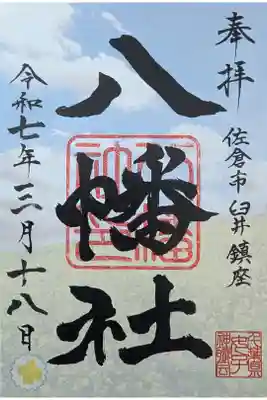 奉拝
佐倉市臼井鎮座
八幡社
令和七年三月十八日